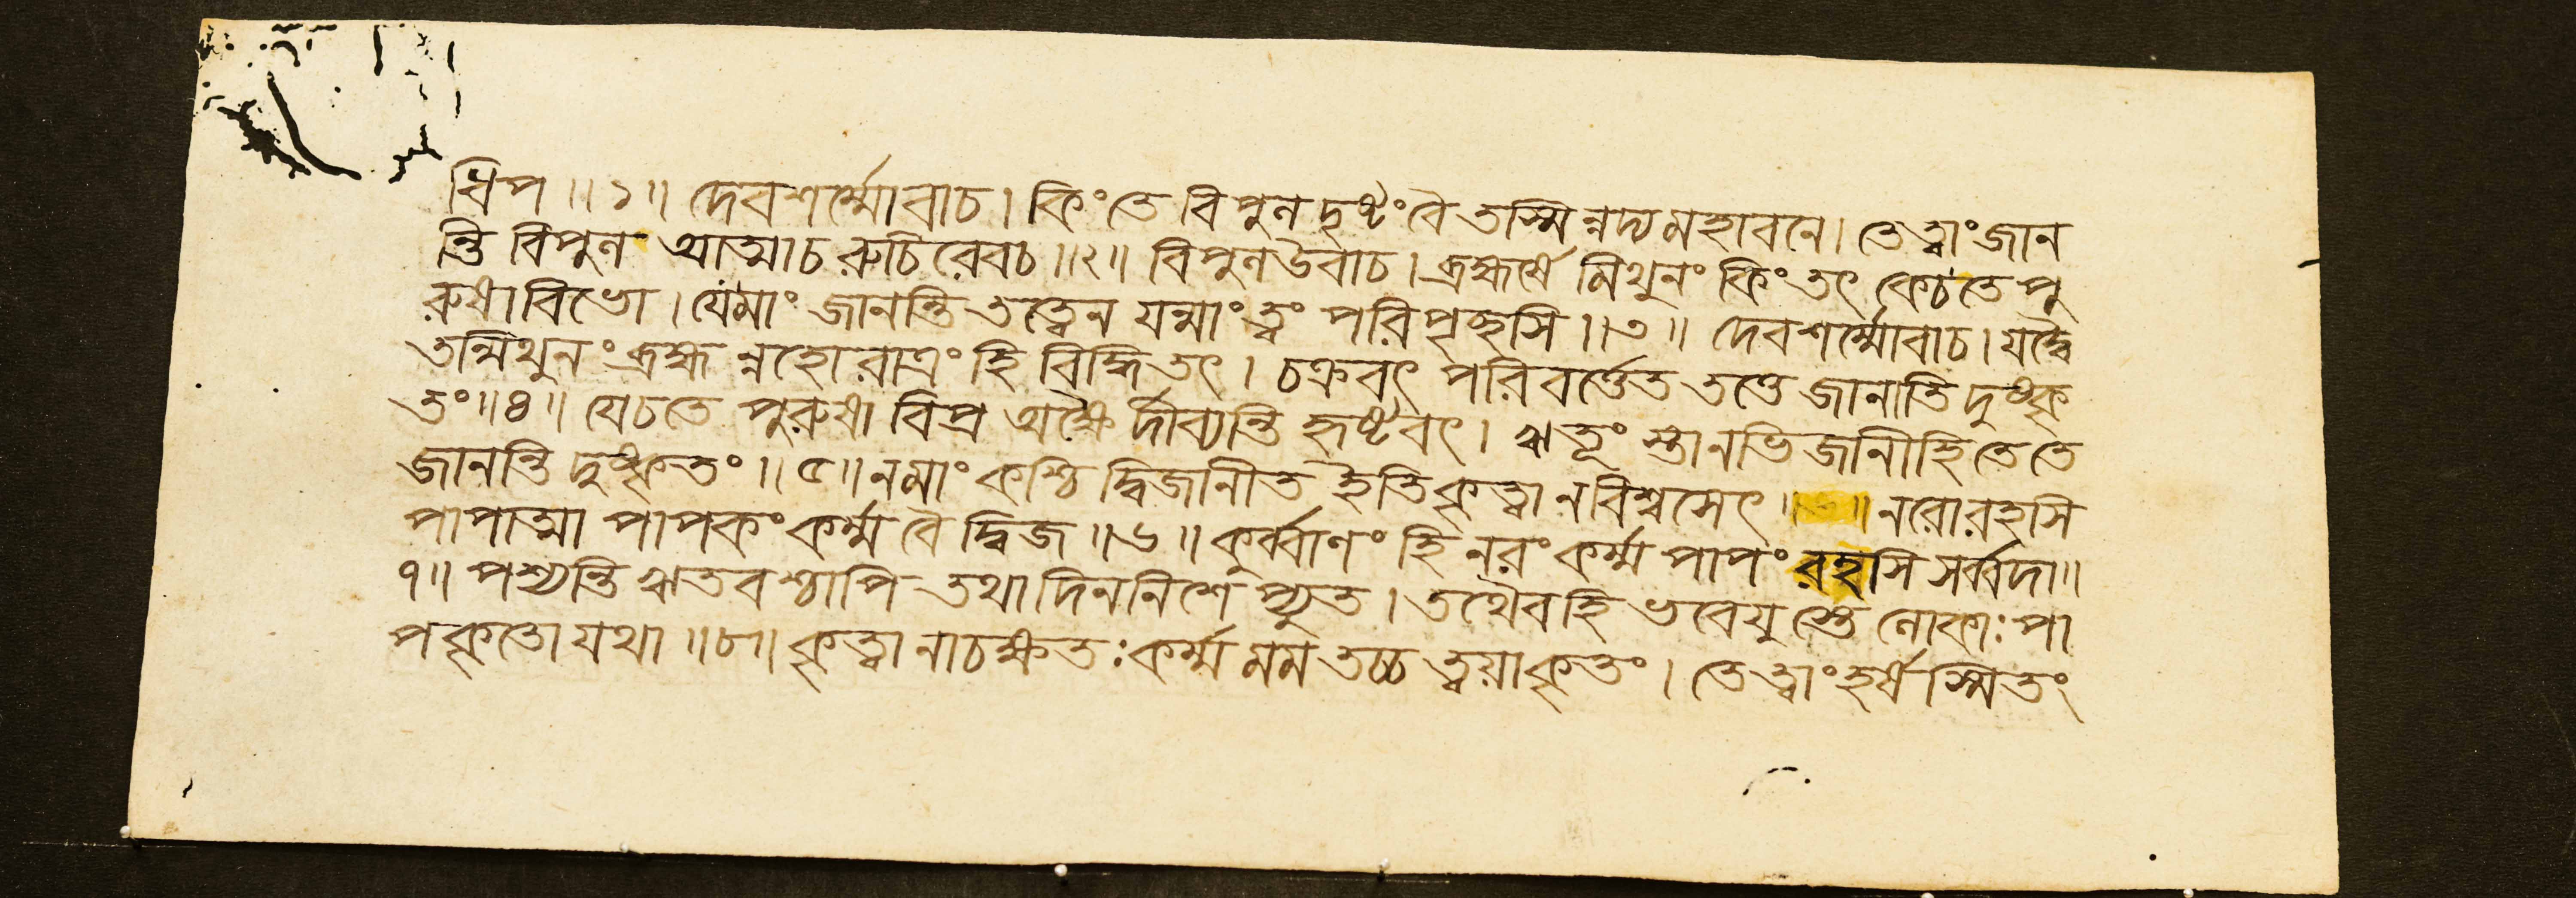 ধিপ ॥ ১ ॥ দেবশর্ম্মোবাচ । কিং তে বিপুল দৃষ্টং বৈ তস্মিন্নদ্য মহাবনে । তে ত্বাং জান
ন্তি বিপুল আত্মা চ রুচিরেবচ ॥ ২ ॥ বিপুলউবাচ । ব্রহ্মর্ষে মিথুনং কিং তৎ কেচতে পু
রুষা বিভো । যেমাং জানন্তি তত্ত্বেন যন্মাং ত্বং পরিপৃচ্ছসি ॥ ৩ ॥ দেবশর্ম্মোবাচ । যদ্বৈ
তন্মিথুনং ব্রহ্মন্নহোরাত্রং হি বিদ্ধি তৎ । চক্রবৎ পরিবর্ত্তেত তত্তে জানাতি দুষ্কৃ
তং ॥ ৪ ॥ যেচতে পুরুষা বিপ্র অক্ষৈর্দীব্যন্তি হৃষ্টবৎ । ঋতূং স্তানভিজানীহি তে তে
জানন্তি দুষ্কৃতং ॥ ৫ ॥ নমাং কশ্চিদ্বিজানীত ইতি কৃত্বা নবিশ্বসেৎ ॥ নরোরহসি
পাপাত্মা পাপকং কর্ম্ম বৈ দ্বিজ ॥ ৬ ॥ কুর্ব্বাণং হি নরং কর্ম্ম পাপং রহসি সর্ব্বদা ॥
৭ ॥ পশ্যন্তি ঋতবশ্চাপি তথা দিননিশেপ্যুত । তথৈবহি ভবেযুস্তে লোকাঃ পা
পকৃতো যথা ॥ ৮ ॥ কৃত্বা নাচক্ষতঃ কর্ম্ম মম তচ্চ ত্বয়াকৃতং । তে ত্বাং হর্ষস্মিতং